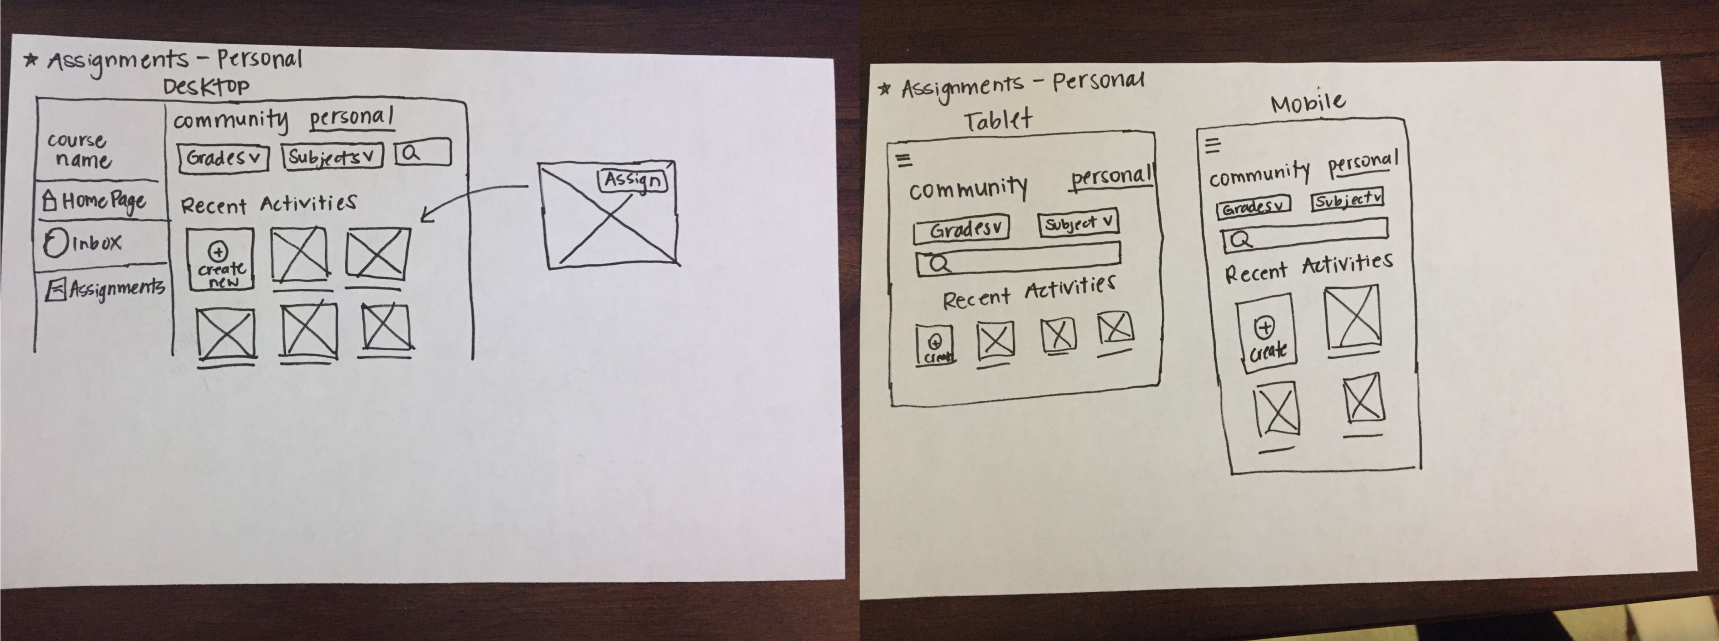 ★ Assignments - Personal
Desktop
course name
Home Page
Inbox
Assignments
community personal
Grades v Subjects v
Recent Activities
+
create
new
Assign
★ Assignments - Personal
Tablet
community personal
Grades v Subject v
Recent Activities
+
create
Mobile
community personal
Grades v Subject v
Recent Activities
+
create